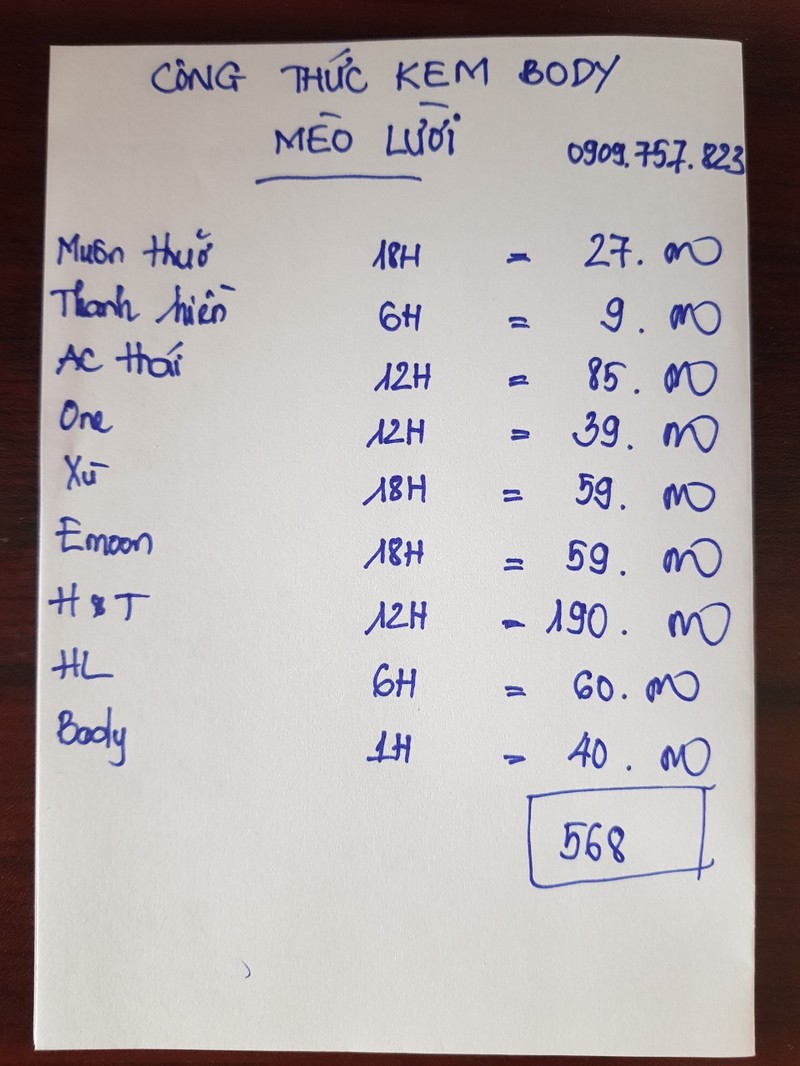 CÔNG THỨC KEM BODY
MÈO LƯỜI
0909.757.823
Muôn thuở 18H = 27.000
Thanh hiền 6H = 9.000
AC thái 12H = 85.000
One 12H = 39.000
Xù 18H = 59.000
Emoon 18H = 59.000
H&T 12H = 190.000
HL 6H = 60.000
Body 1H = 40.000
568